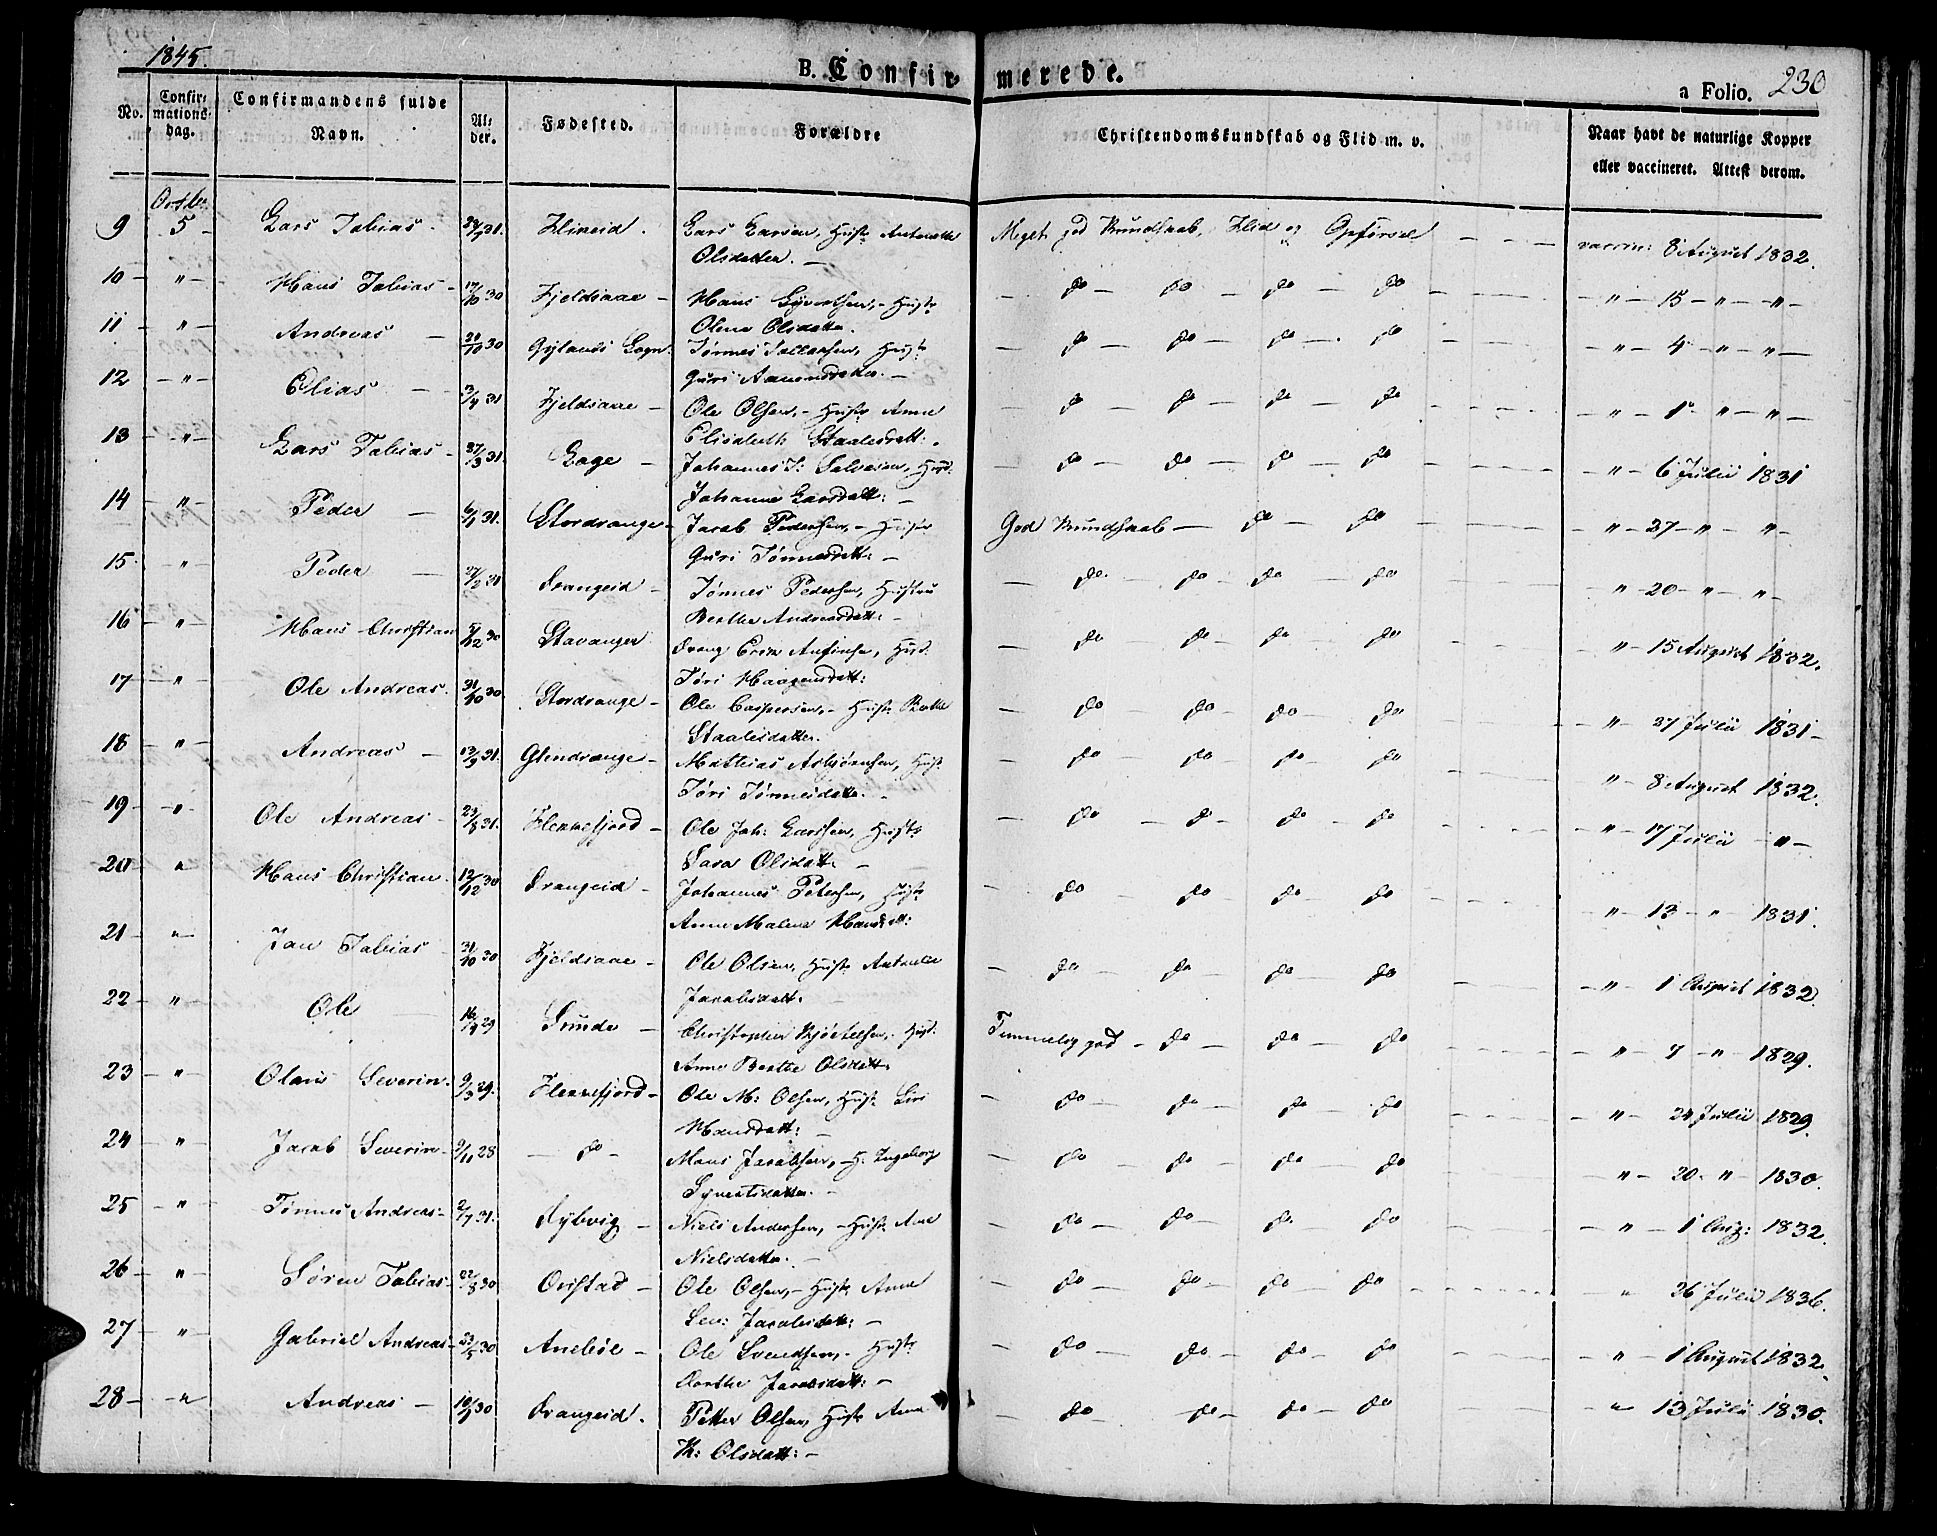 1845.
B. Confirmerede.
a Folio. 230
No. Confirmations dag. Confirmandens fulde Navn. Alder. Fødested. Forældre Christendomskundskab og Flid m. v. Naar havt de naturlige Kopper eller vaccineret. Attest derom.
Octbr
9 5 - Lars Tobias. 31. Flineid. Lars Larsen, Hustr Antonette Meget god Kundskab, Flid og Opførsel - - - vaccin: 8 August 1832.
Olsdatter. -
10 - " - Hans Tobias - 17/10 30 Fjeldsaae - Hans Hustr - do - do - do - do - - " - 15 - " - " -
Olene Olsdatter.
11 - " - Andreas - 20/10 30 Gylands Sogn. Tønnes Tallaksen, Hustr - do - do - do - do - " - 4 - " - " -
Guri Aamundsdatter. -
12 - " - Elias - 3/4 31 Fjeldsaae - Ole Olsen, - Hustr Anne - do - do - do - do - - " - 1 - " - " -
Elisabeth Staalesdatt: .
13 - " - Lars Tobias - 27/3 31. Eage - Johannes T: Salvesen, Hust: - do - do - do - do - " - 6 Julii 1831
Johanne Larsdatt: -
14 - " - Peder - 6/1 31. Stordrange - Jacob Pedersen, - Hustr God Kundskab - do - do - " - 27 - " - " -
Guri Tønnesdatt: -
15. - " - Peder - 27/2 31 Drangeid - Tønnes Pedersen, Hustru - do - do - do - do - " - 20 - " - " -
Berthe Andreasdatt: -
16 - " - Hans Christian 5/12 30 Stavanger. Dreng Erik Anfinsen, Hust: - do - do - do - do - " - 15 August 1832.
Tøri Haagensdatt:
17 - " - Ole Andreas. 31/10 30. Stordrange - Ole Caspersen, - Hustr Berthe - do - do - do - do - " - 27 Julii 1831 -
Staalesdatter.
18 - " - Andreas - 13/9 31. Glendrange - Mathias Asbjørnsen, Hustr - do - do - do - do - " - 8 August 1832.
Tøri Tønnesdatter. -
19 - " - Ole Andreas - 23/8 31. Flekkefjord - Ole Joh: Larsen, Hustr - do - do - do - do - " - 17 Julii - " -
Sara Olsdatt: -
20 - " Hans Christian. 12/12 30 Drangeid - Johannes Petersen, Hustr - do - do - do - do - " - 13 - " - 1831.
Anne Malene Hansdatt:
21 - " - Jan Tobias - 31/10 30 Fjeldsaae - Ole Olsen, Hustr Antonette - do - do - do - do - " - 1 August 1832.
Jacobsdatt. -
22 - " Ole - 16/9 29 Sunde - Christopher Kjøstelsen, Hust: Temmelig god - do - do - do - " - 7 - " - 1829.
Anne Berthe Olsdatt.
23 - " - Olaus Severin. 9/3 29. Flekkefjord - Ole M: Olsen, Hustr Siri - do - do - do - do - " - 24 Julii 1829.
Hansdatt: -
24 - " - Jacob Severin - 9/11 28 - do - Hans Jacobsen, - H. Ingeborg - do - do - do - do - " - 20. " - 1830.
Syvertsdatter. -
25 - " - Tønnes Andreas - 2/7 31. Dybvig - Niels Andersen, - Hustr Ane - do - do - do - do - " - 1 Aug: 1832.
Nielsdatter. -
26 - " - Søren Tobias - 22/8 30 Ovistad - Ole Olsen, - Hustr Anne - do - do - do - do - " - 26 Julii 1836.
Sev: Jacobsdatt: -
27 - " - Gabriel Andreas - 23/5 30 Anebøe - Ole Svendsen, - Hustr - do - do - do - do - " - 1 August 1832.
Dorthe Jacobsdatt: -
28 - " Andreas - 10/1 30 Drangeid. Petter Olsen, Hustr Anne - do - do - do - do - " - 13 Julii 1830.
K: Olsdatt: -